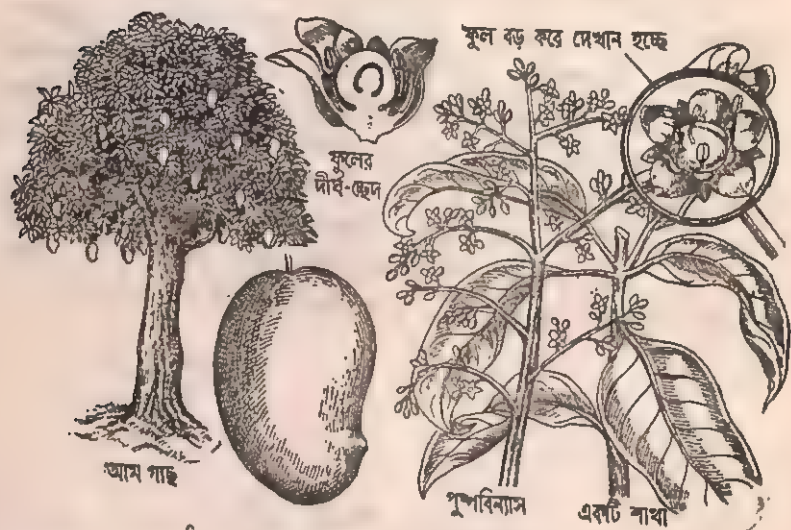 ফুল বড় করে দেখান হচ্ছে
ফুলের
দীর্ঘ-ছেদ
আম গাছ
পুষ্পবিন্যাস
একটি শাখা